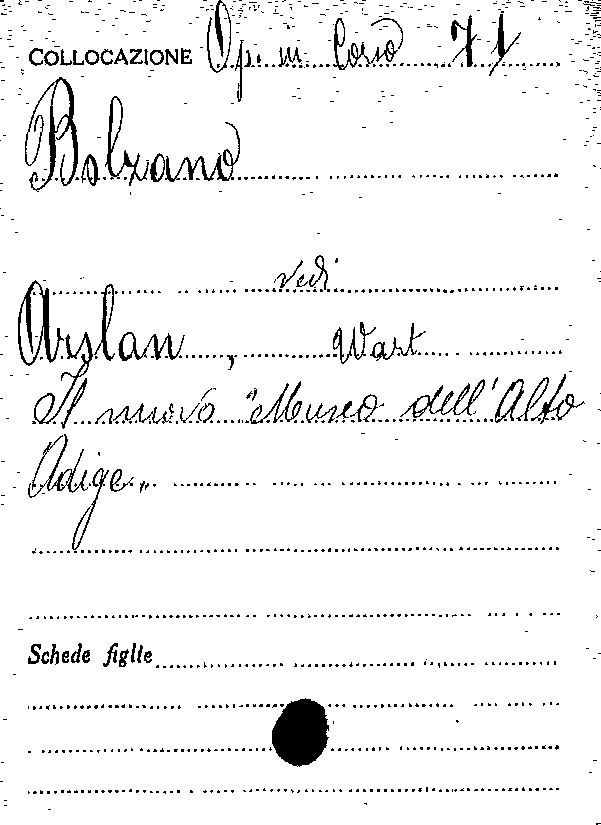 COLLOCAZIONE Op. in Corso 71
Bolzano
vedi
Arslan, Wart
Il nuovo "Museo dell'Alto
Adige„
Schede figlie